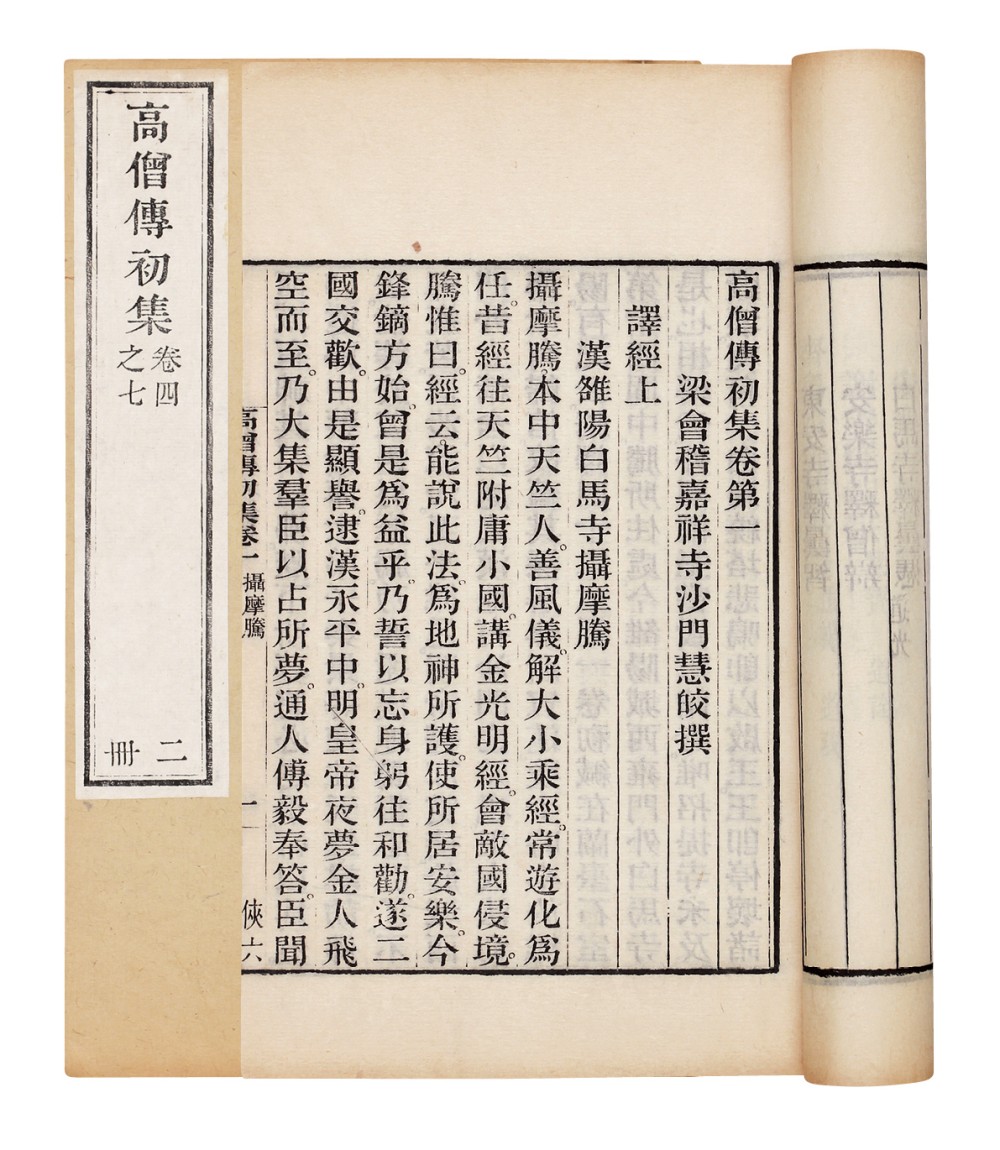 高僧傳初集卷第一
梁會稽嘉祥寺沙門慧皎撰
譯經上
漢雒陽白馬寺攝摩騰
攝摩騰。本中天竺人。善風儀。解大小乘經。常遊化爲
任。昔經往天竺附庸小國。講金光明經。會敵國侵境。
騰惟曰。經云。能說此法。爲地神所護。使所居安樂。今
鋒鏑方始。曾是爲益乎。乃誓以忘身。躬往和勸。遂二
國交歡。由是顯譽。逮漢永平中。明皇帝夜夢金人飛
空而至。乃大集羣臣以占所夢。通人傅毅奉答。臣聞
高僧傳初集卷一 攝摩騰 一 俠六
高僧傳初集 卷四之七
二冊